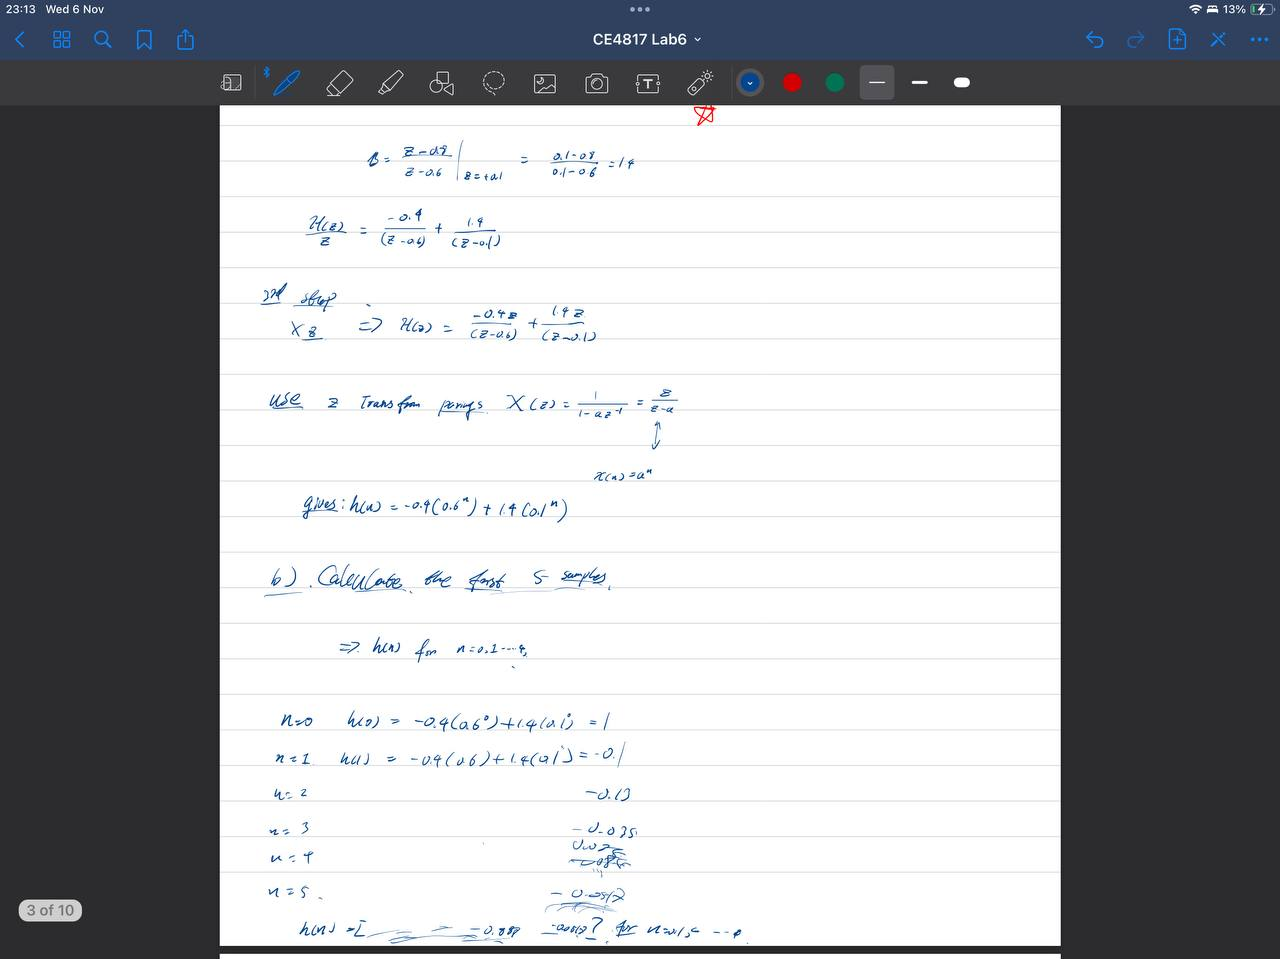 23:13 Wed 6 Nov
13%
CE4817 Lab6
B = z-0.8 / z-0.6 | z=+0.1 = 0.1-0.8 / 0.1-0.6 = 1.4
H(z) / z = -0.4 / (z-0.6) + 1.4 / (z-0.1)
step
X z ⇒ H(z) = -0.4z / (z-0.6) + 1.4z / (z-0.1)
use z Transform X(z) = 1 / 1-az⁻¹ = z / z-a
↕
x(n) = aⁿ
gives: h(n) = -0.4(0.6ⁿ) + 1.4(0.1ⁿ)
b). Calculate the first 5 samples.
⇒ h(n) for n=0.1----4,
n=0 h(0) = -0.4(0.6⁰)+1.4(0.1⁰) = 1
n=1. h(1) = -0.4(0.6)+1.4(0.1¹) = -0.1
n=2 -0.13
n=3 -0.035
n=4
n=5.
h(n) = [ for
3 of 10